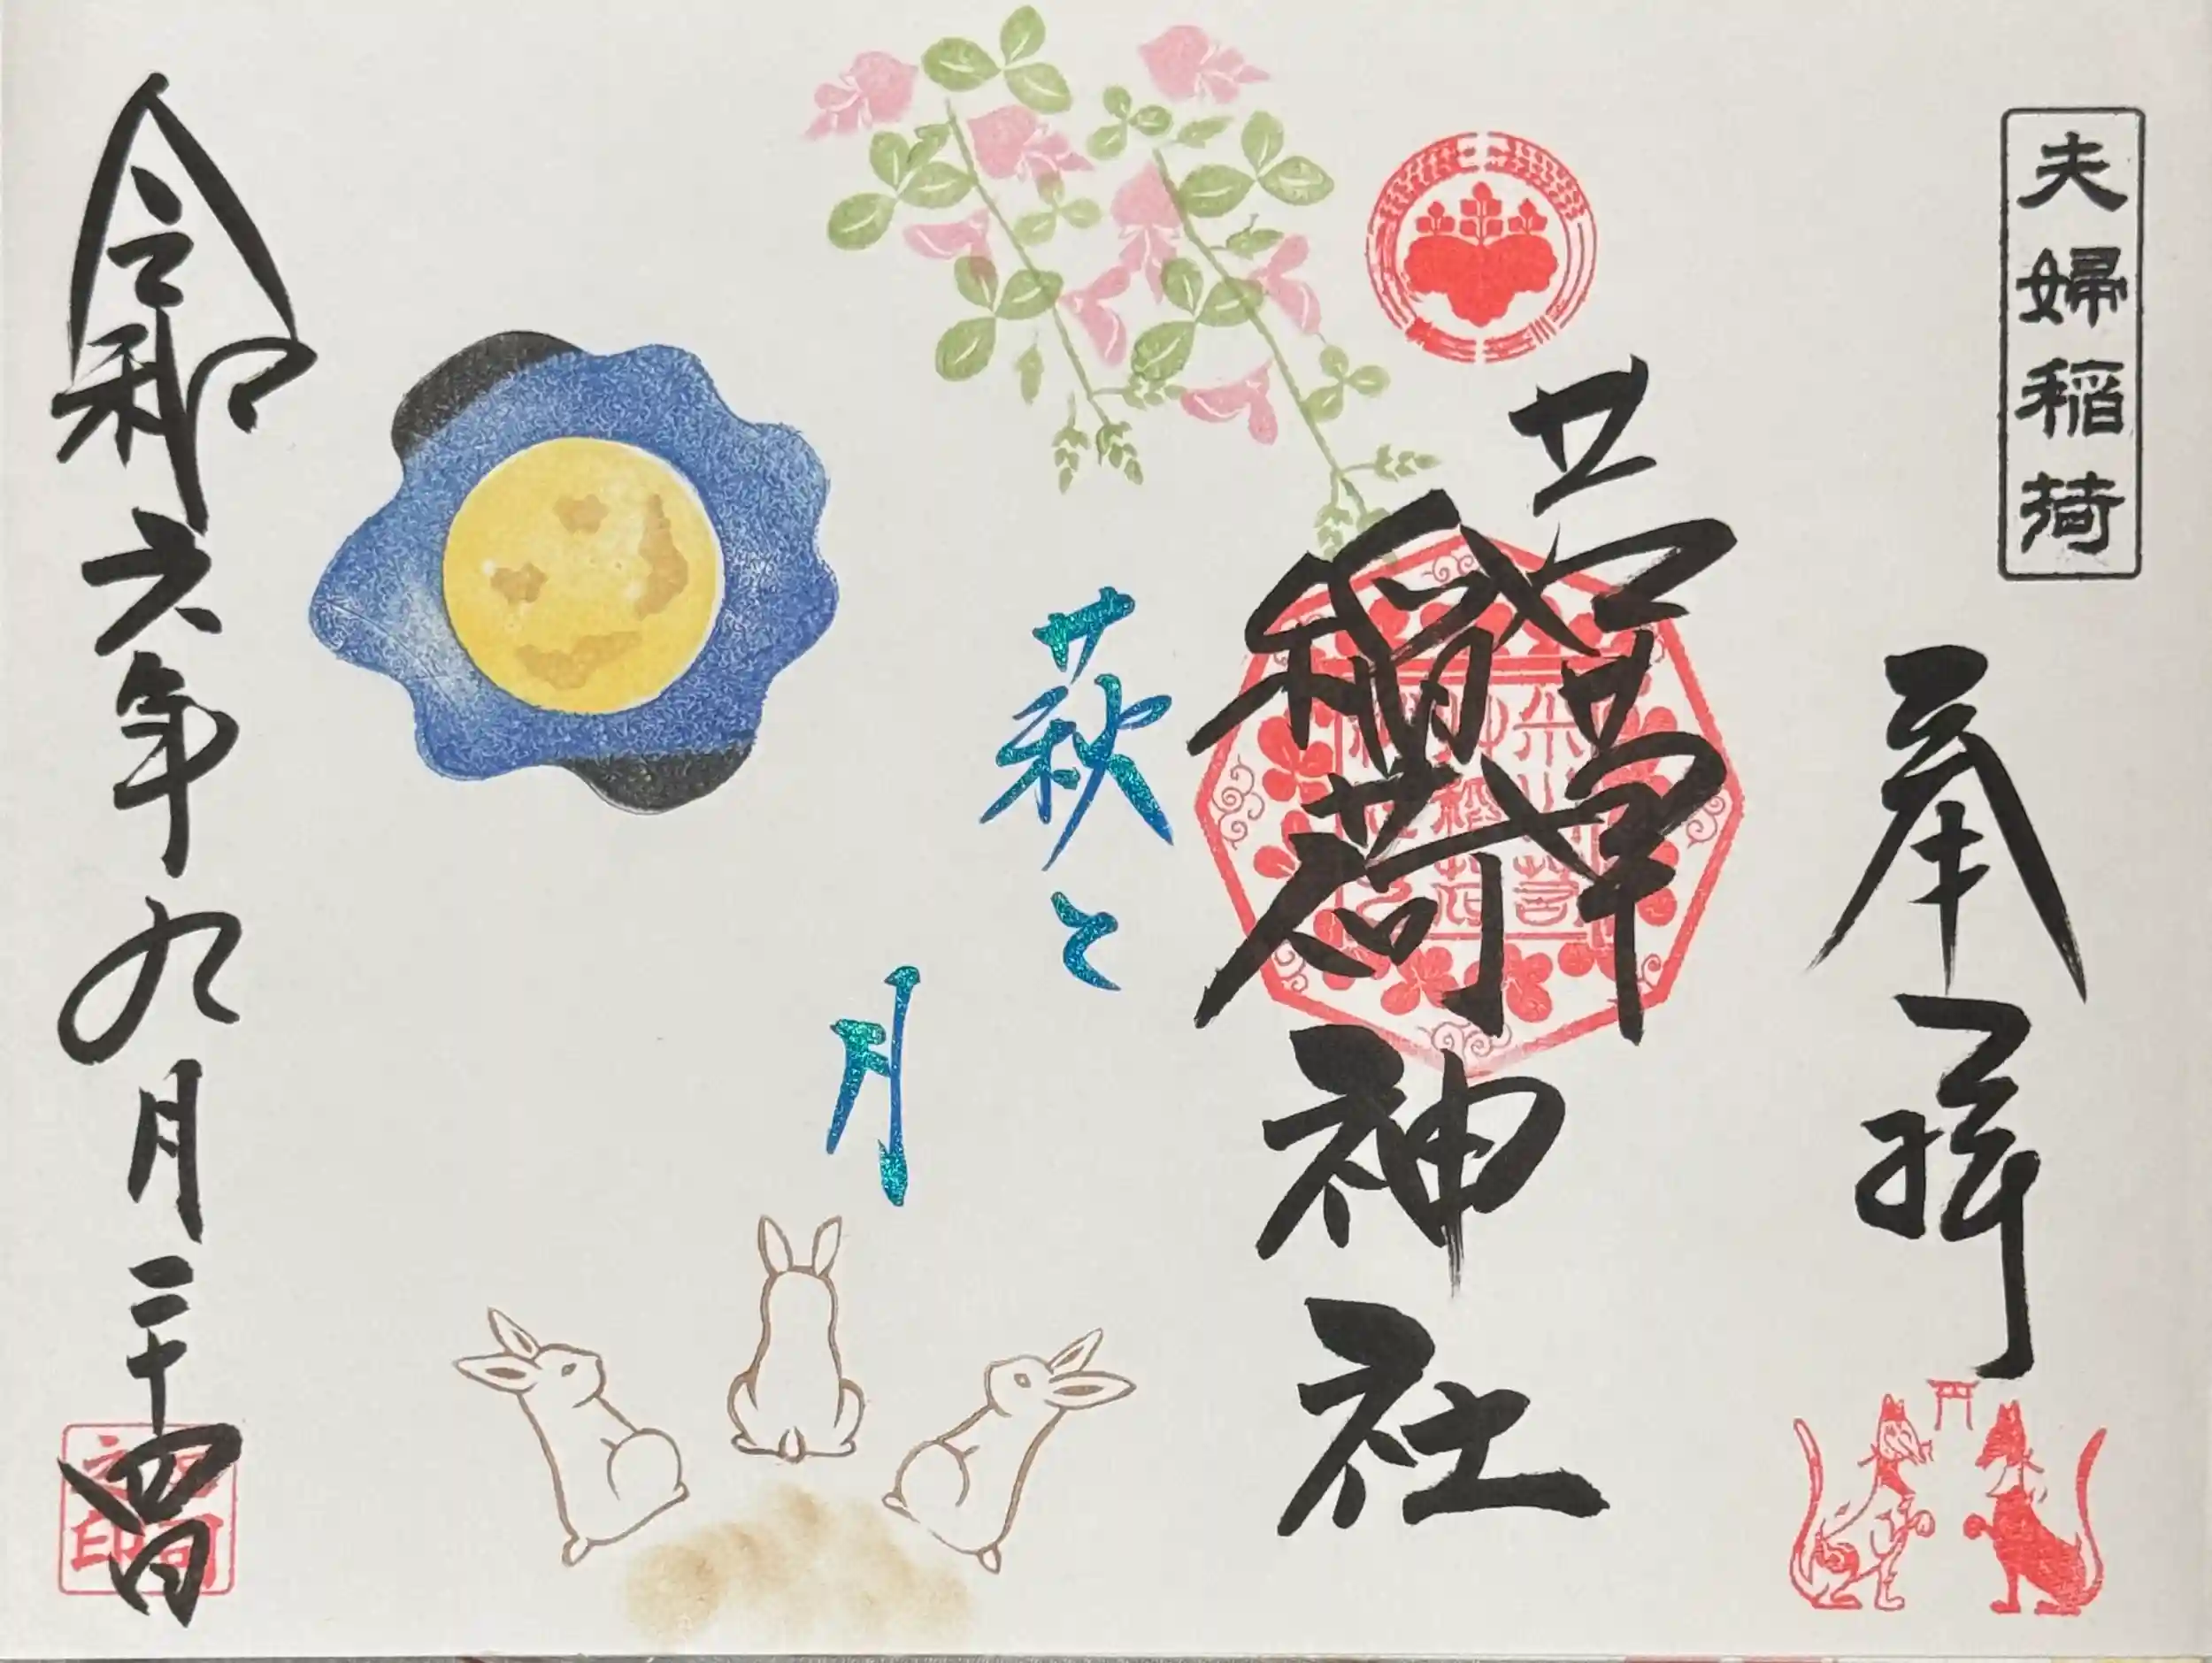 夫婦稲荷
奉拝
稲荷
神社
萩と
月
令和六年九月二十四日